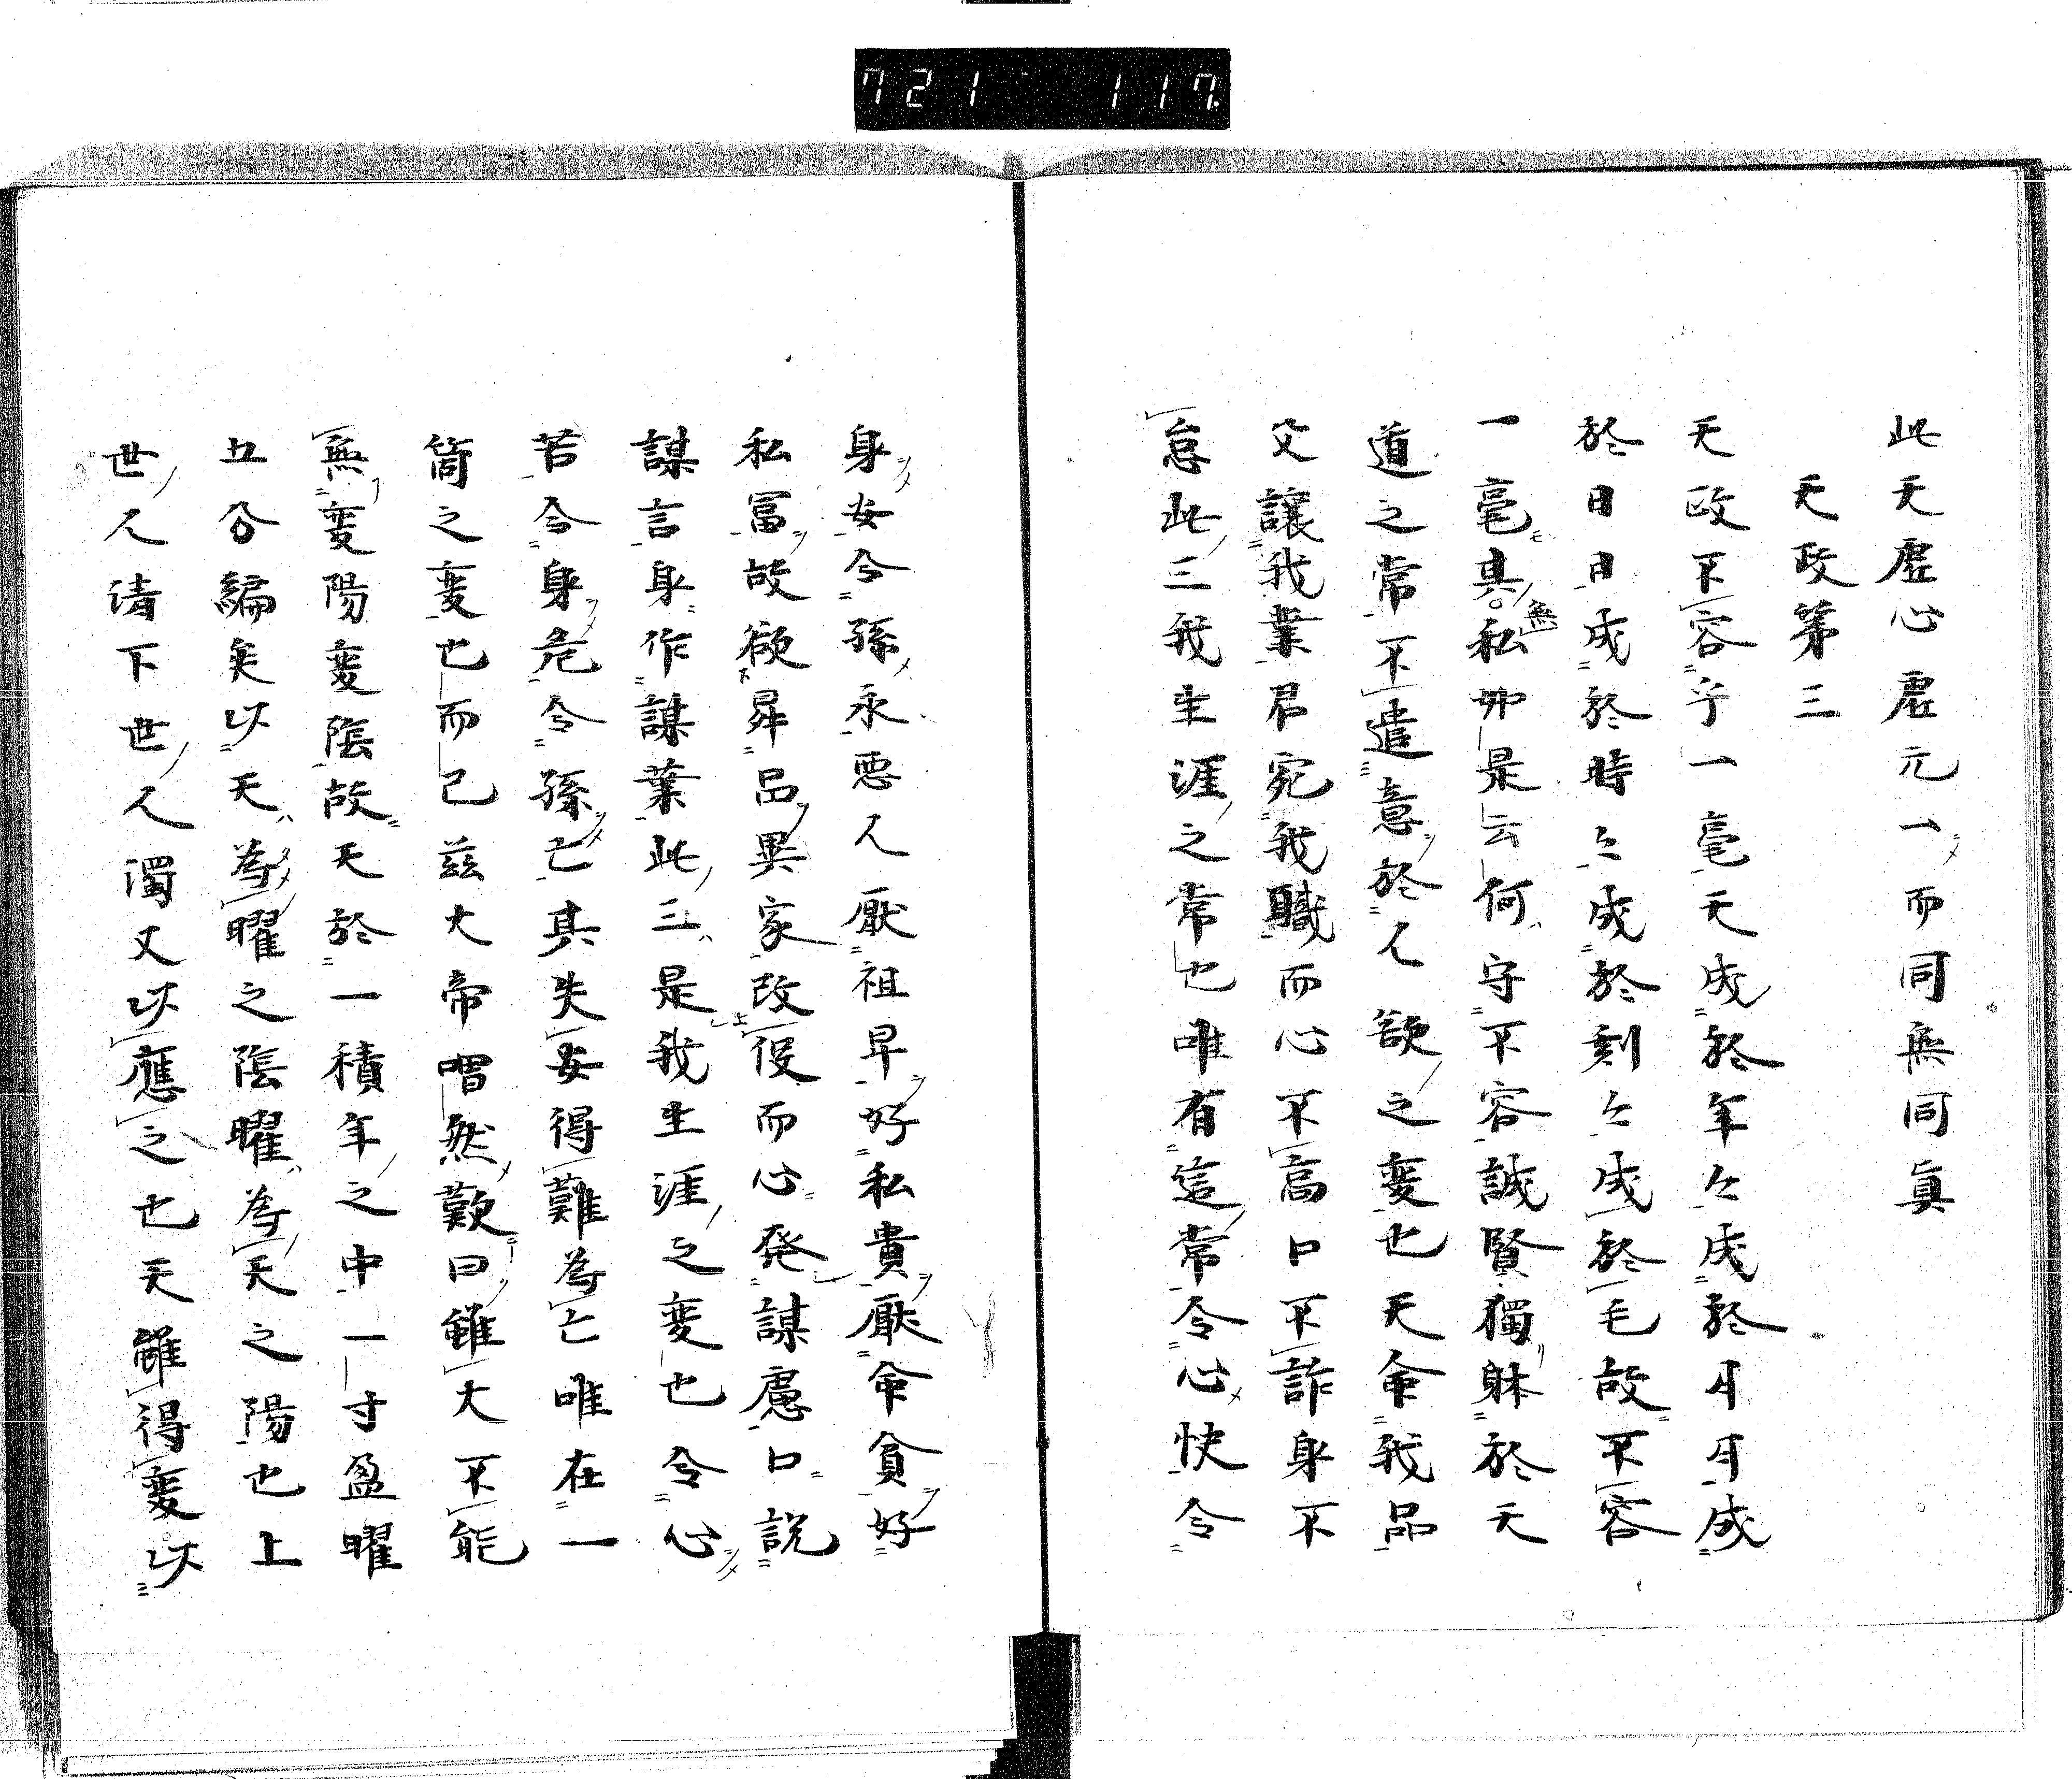 721 117
此天虚心虚元一而同無同真
天政第三
天政不容乎一毫天成於年々成於月月成
於日日成於時々成於刻々成於毛故不容
一毫其無私如是云何守不容誠賢獨躰於天
道之常不遣意於人欲之変也天命我品
父讓我業君宛我職而心不高口不詐身不
怠此三我生涯之常也唯有這常令心快令
身安令孫永悪人厭祖卑好私貴厭命貧好
私冨故欲昇品異家改役而心発謀慮口説
謀言身作謀業此三是我生涯之変也令心
苦令身危令孫亡其失安得難為亡唯在一
箇之変也而已茲大帝喟然歎曰雖大不能
無変陽変陰故天於一積年之中一寸盈曜
五分編矣以天為曜之陰曜為天之陽也上
世人清下世人濁丈以應之也天雖得変以